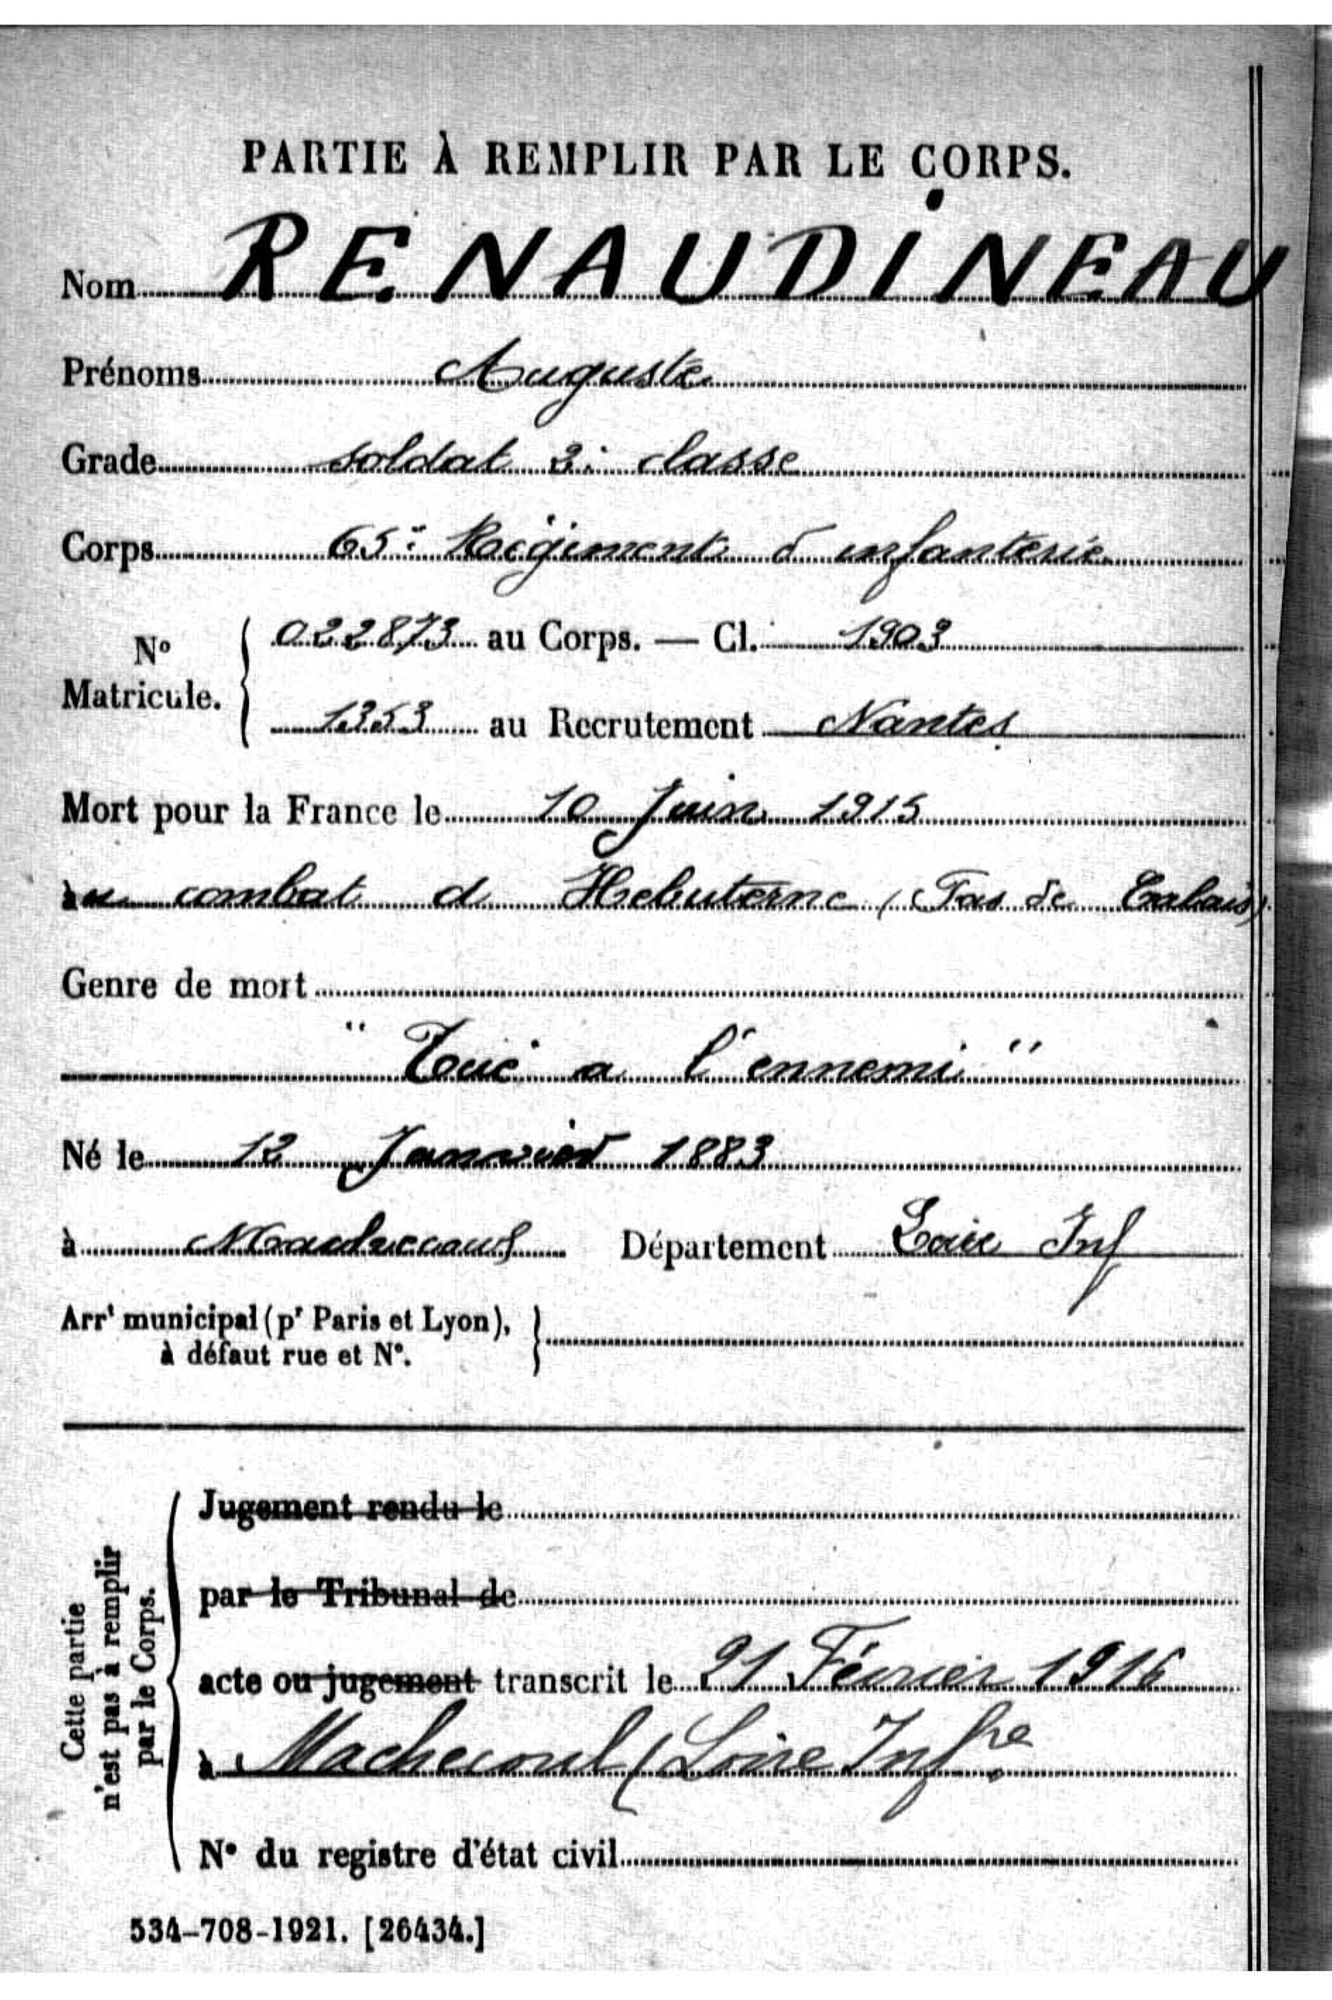 PARTIE À REMPLIR PAR LE CORPS.
Nom RENAUDINEAU
Prénoms Auguste
Grade soldat 2e classe
Corps 65e Régiment d'infanterie
No Matricule. 022873 au Corps. — Cl. 1903
1353 au Recrutement Nantes
Mort pour la France le 10 Juin 1915
au combat d Hebuterne (Pas de Calais)
Genre de mort
"Tué a l'ennemi"
Né le 12 Janvier 1883
à Machecoul Département Loire Inf
Arrt municipal (pr Paris et Lyon),
à défaut rue et No.
Cette partie n'est pas à remplir par le Corps.
Jugement rendu le
par le Tribunal de
acte ou jugement transcrit le 21 Février 1916
à Machecoul (Loire Infre
No du registre d'état civil
534-708-1921. [26434.]